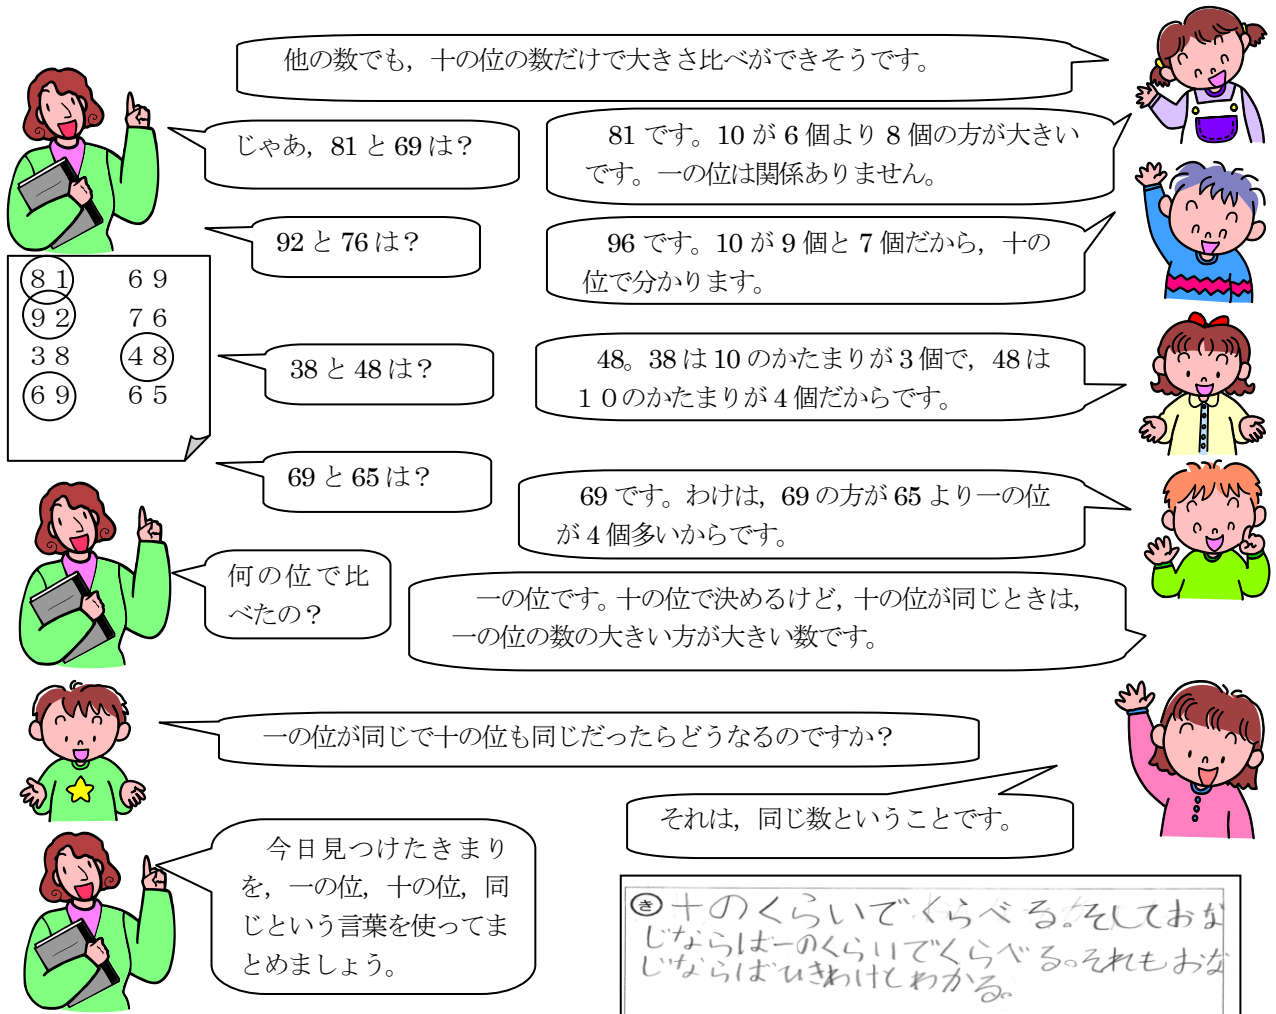 他の数でも，十の位の数だけで大きさ比べができそうです。
じゃあ，81 と 69 は？
81 です。10 が 6 個より 8 個の方が大きい
です。一の位は関係ありません。
92 と 76 は？
96 です。10 が 9 個と 7 個だから，十の
位で分かります。
８１　６９
９２　７６
３８　４８
６９　６５
38 と 48 は？
48。38 は 10 のかたまりが 3 個で，48 は
１０のかたまりが 4 個だからです。
69 と 65 は？
69 です。わけは，69 の方が 65 より一の位
が 4 個多いからです。
何の位で比
べたの？
一の位です。十の位で決めるけど，十の位が同じときは，
一の位の数の大きい方が大きい数です。
一の位が同じで十の位も同じだったらどうなるのですか？
それは，同じ数ということです。
今日見つけたきまり
を，一の位，十の位，同
じという言葉を使ってま
とめましょう。
㋖十のくらいでくらべる。そしておな
じならば一のくらいでくらべる。それもおな
じならばひきわけとわかる。